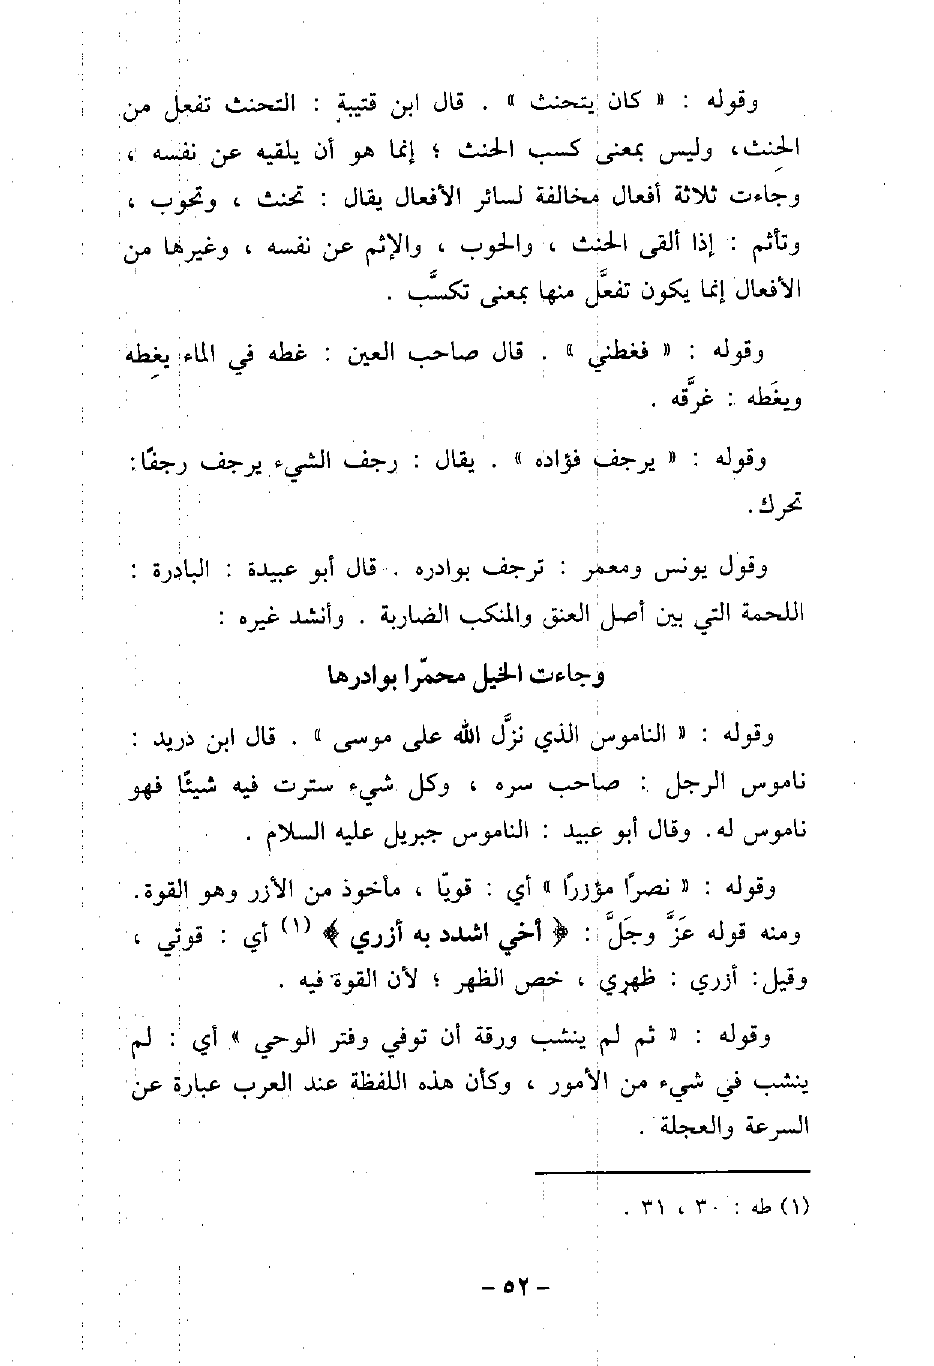 وقوله : « كان يتحنث » . قال ابن قتيبة : التحنث تفعل من
الحِنث، وليس بمعنى كسب الحنث ؛ إنما هو أن يلقيه عن نفسه ،
وجاءت ثلاثة أفعال مخالفة لسائر الأفعال يقال : تحنث ، وتحوب ،
وتأثم : إذا ألقى الحنث ، والحوب ، والإثم عن نفسه ، وغيرها من
الأفعال إنما يكون تفعَّل منها بمعنى تكسَّب .
وقوله : « فغطني » . قال صاحب العين : غطه في الماء يغِطه
ويغَطه : غرَّقه .
وقوله : « يرجف فؤاده » . يقال : رجف الشيء يرجف رجفًا:
تحرك.
وقول يونس ومعمر : ترجف بوادره . قال أبو عبيدة : البادرة :
اللحمة التي بين أصل العنق والمنكب الضاربة . وأنشد غيره :
وجاءت الخيل محمّرا بوادرها
وقوله : « الناموس الذي نزَّل الله على موسى » . قال ابن دريد :
ناموس الرجل : صاحب سره ، وكل شيء سترت فيه شيئًا فهو
ناموس له. وقال أبو عبيد : الناموس جبريل عليه السلام .
وقوله : « نصرًا مؤزرًا » أي : قويًا ، مأخوذ من الأزر وهو القوة.
ومنه قوله عَزَّ وجَلَّ : ﴿ أخي اشدد به أزري ﴾ (١) أي : قوتي ،
وقيل: أزري : ظهري ، خص الظهر ؛ لأن القوة فيه .
وقوله : « ثم لم ينشب ورقة أن توفي وفتر الوحي » أي : لم
ينشب في شيء من الأمور ، وكأن هذه اللفظة عند العرب عبارة عن
السرعة والعجلة .
(١) طه : ٣٠ ، ٣١ .
- ٥٢ -